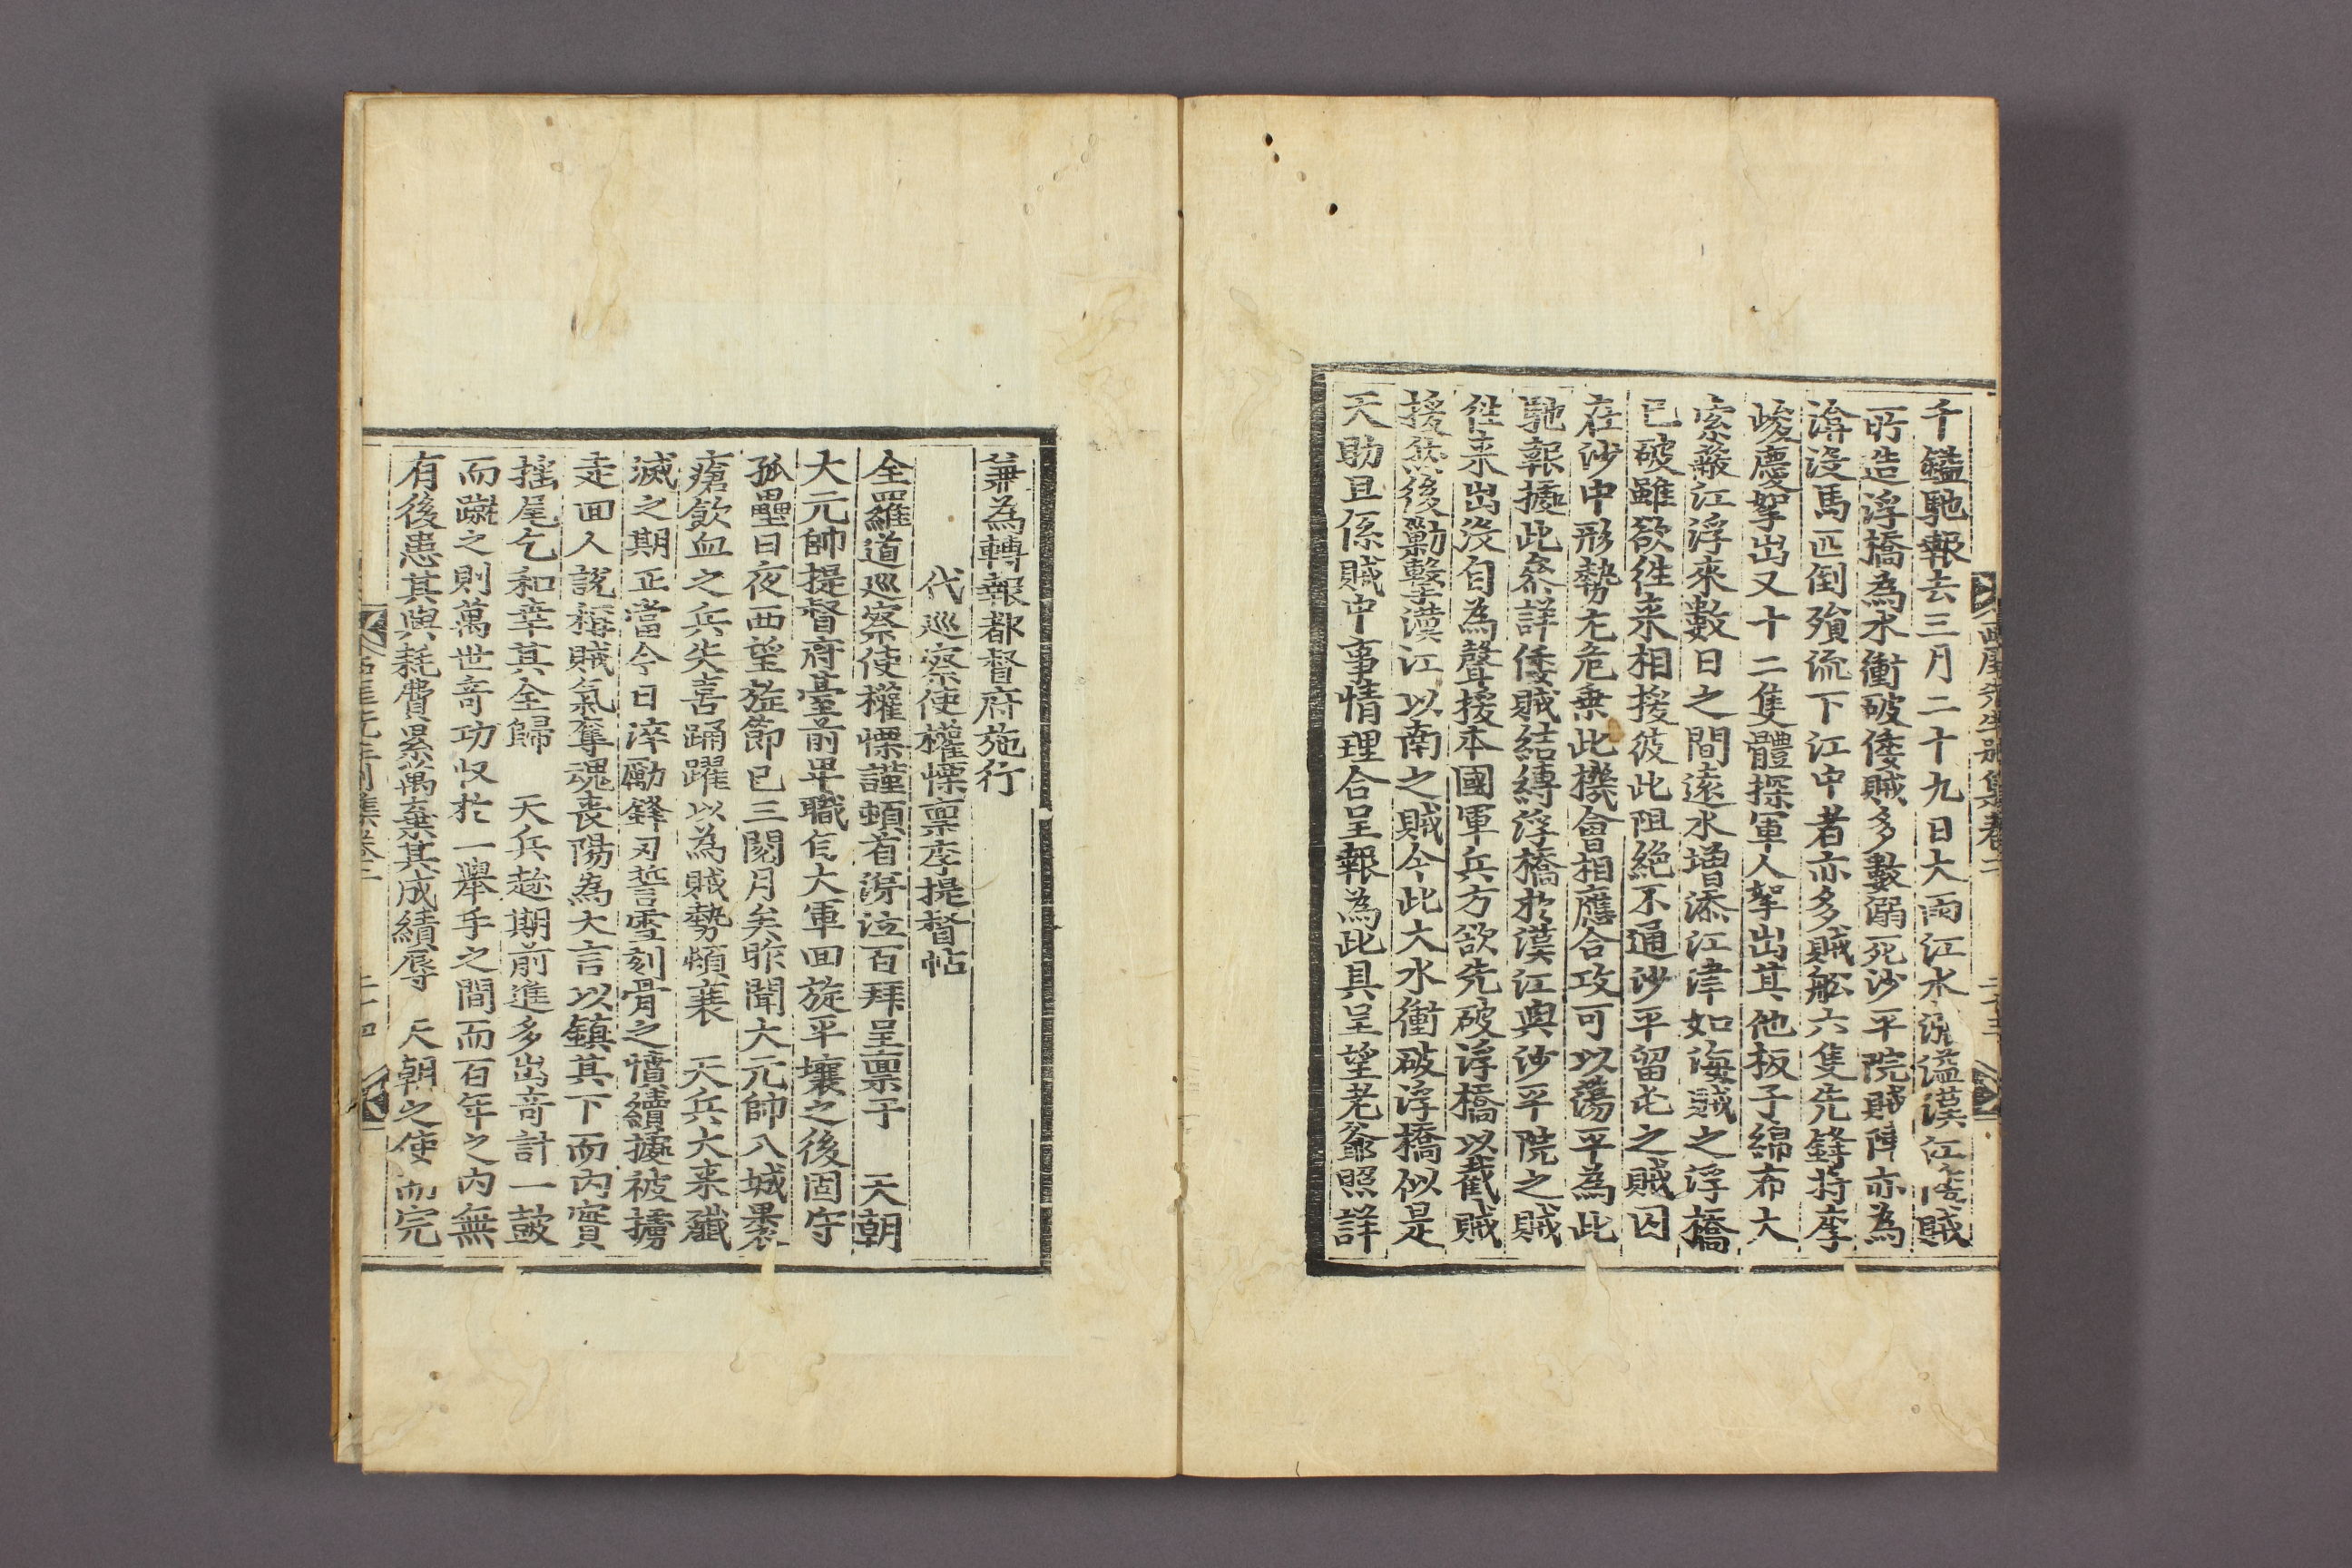 千鎰馳報去三月二十九日大雨江水漲溢漢江倭賊
所造浮橋為水衝破倭賊多數溺死沙平院賊陣亦為
渰沒馬匹倒殞流下江中者亦多賊船六隻先鋒將李
峻慶拏出又十二隻體探軍人拏出其他板子綿布大
索蔽江浮來數日之間遠水增添江津如海賊之浮橋
已破雖欲徃来相援彼此阻絶不通沙平留屯之賊囚
在沙中形勢尤危乗此機會相應合攻可以蕩平為此
馳報據此叅詳倭賊結縛浮橋於漢江與沙平院之賊
徃来出没自為聲援本國軍兵方欲先破浮橋以截賊
援然後勦擊漢江以南之賊今此大水衝破浮橋似是
天助且係賊中事情理合呈報為此具呈望老爺照詳
兼為轉報都督府施行
代巡察使權慄禀李提督帖
全羅道巡察使權慄謹頓首涕泣百拜呈禀于 天朝
大元帥提督府臺前卑職自大軍回旋平壤之後固守
孤壘日夜西望旋節已三閱月矣昨聞大元帥入城裹
瘡飮血之兵失喜踊躍以為賊勢頓衰 天兵大来殲
滅之期正當今日淬勵鋒刃誓雪刻骨之憤續據被擄
走回人說稱賊氣奪魂喪陽為大言以鎮其下而內實
搖尾乞和幸其全歸 天兵趁期前進多出竒計一鼓
而蹴之則萬世竒功收於一舉手之間而百年之內無
有後患其與耗費累萬棄其成績辱 天朝之使而完